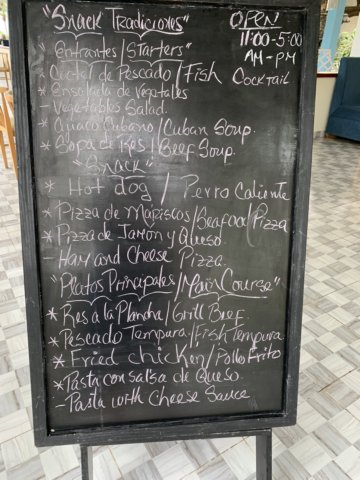 "Snack Tradiciones"
OPEN
11:00-5:00
AM-PM
"Entrantes/Starters"
* Coctal de Pescado/Fish Cocktail
* Ensalada de Vegetales
- Vegetables Salad.
* Guiaco Cubano/Cuban Soup.
* Sopa de Res/Beef Soup.
"Snack"
* Hot dog / Perro Caliente
* Pizza de Mariscos/Beafood Pizza
* Pizza de Jamón y Queso.
- Ham and Cheese Pizza.
"Platos Principales/Main Course"
* Res a la Plancha/Grill Beef.
* Pescado Tempura/Fish Tempura
* Fried chicken/Pollo Frito
* Pasta con salsa de Queso.
- Pasta with Cheese Sauce